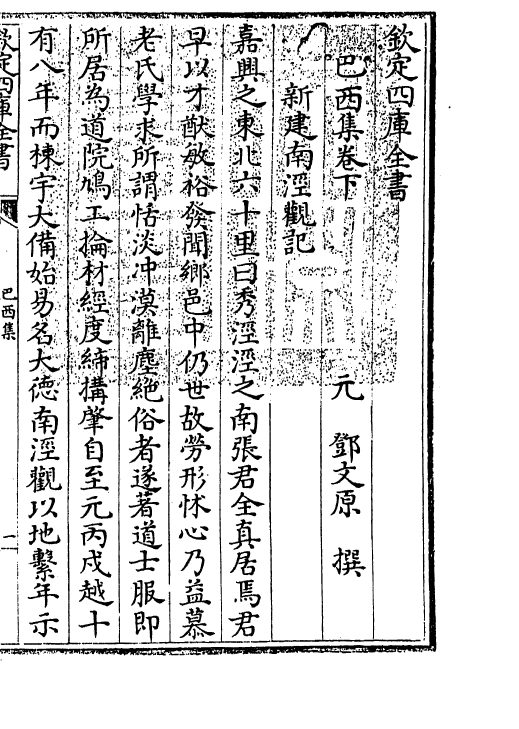 欽定四庫全書
巴西集卷下
元 鄧文原 撰
新建南涇觀記
嘉興之東北六十里曰秀涇涇之南張君全真居焉君
早以才猷敏裕發聞鄉邑中仍世故勞形怵心乃益慕
老氏學求所謂恬淡冲漠離塵絶俗者遂著道士服即
所居為道院鳩工掄材經度締構肇自至元丙戍越十
有八年而棟宇大備始易名大德南涇觀以地繫年示
欽定四庫全書
巴西集
一